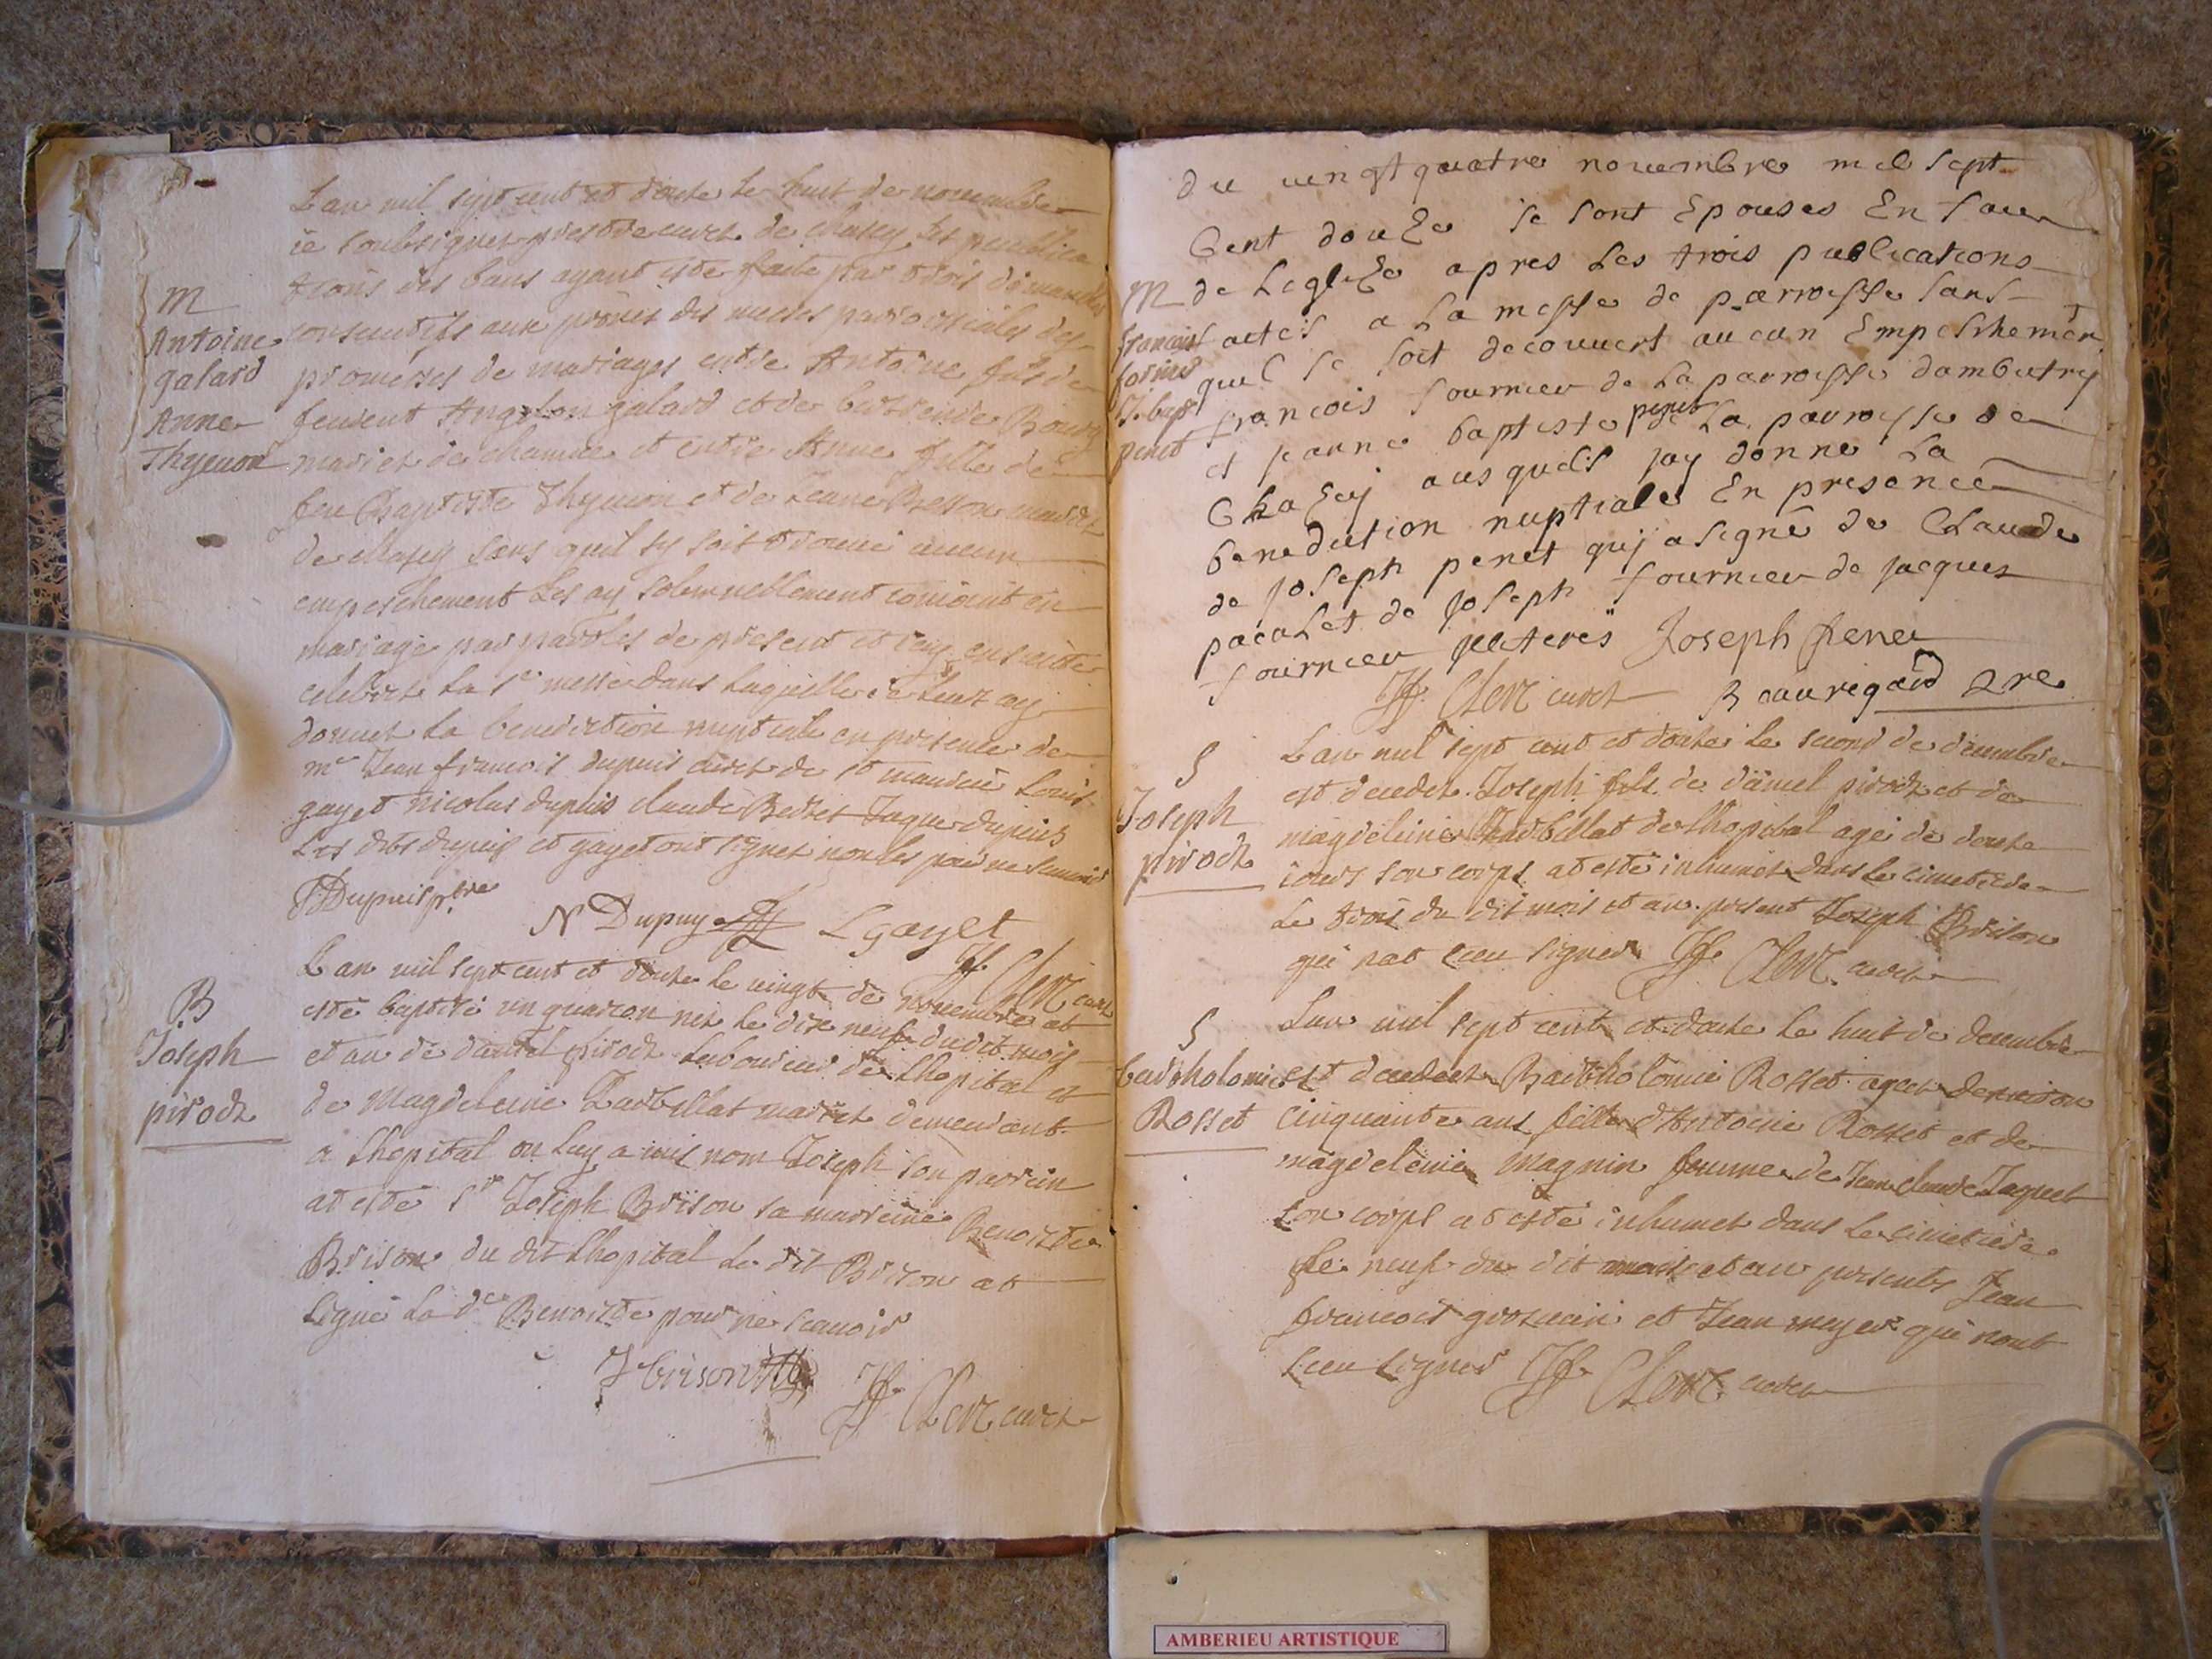 M
Antoine
galard
Anne
Thyenon
Lan mil sept cent et douze le huit de novembre
ie soubsigner prestre curez de chasey les publica
tions des bans ayant este faite par trois dimanches
consecutifs aux prônes des messes parrochiales des
promesses de mariages entre Antoine fils de
feu Baptiste Thyenon et de Jeanne Besson mariez
de chasey sans quil sy soit trouué aucun
empeschement les ay solemnellement conioint en
mariage par paroles de present et ay ensuitte
celebrez la Ste messe dans laquelle ie leur ay
donnez la benediction nuptiale en presence de
mre Jean francois dupuis curez de st maurice Louis
gayet nicolas dupuis claude Jaque dupuis
Les dits dupuis et gayet ont signez non les pour ne scauoir
Dupuis pbre
N Dupuy L gayet
Jf. Clerc curez
B
Joseph
pirodz
Lan mil sept cent et douze le vingt de novembre at
esté baptisé un guarcon nez le dix neufe du dit mois
et an de daniel pirodz laboureur de Lhopital et
de Magdeleine mariez demeurant
a lhopital on luy a mis nom Joseph son parrein
at esté Sr Joseph Brison sa marreine Benoiste
Brison du dit Lhopital le dit Brison at
signé la dte Benoiste pour ne scauoir
J brison
Jf. Clerc curez
du uengt quatre nouembre mil sept
Cent douze se sont Epouses En face
M
francois
fornier
J. bapt
peret
de leglize apres les trois publications
actes a la messe de parroisse sans
quil se soit decouuert aucun Empeschement
francois fournier de la parroisse dambutry
et jeanne baptiste peret de la parroisse de
Chazey ausquels jay donne la
benediction nuptiale En presence
de joseph peret quj a signé de Claude
pacalet de joseph fournier de jacques
fournier jlleteres Joseph pere
Jf. Clerc curez Beauregard
S
Joseph
pirodz
Lan mil sept cent et douze le second de decembre
est decedez Joseph fils de daniel pirodz et de
magdeleine de Lhopital agé de douze
iours son corps at esté inhumez dans le cimetiere
le trois du dit mois et an present Joseph Brison
qui nat sceu signer Jf. Clerc curez
S
bartholomie
Rosset
Lan mil sept cent et douze le huit de decembre
est decedez Bartholomie Rosset agez denuiron
cinquante ans fille d'Antoine Rosset et de
magdeleine magnin femme de Jean claude Jaquet
son corps at esté inhumez dans le cimetiere
le neufe du dit mois et an presents Jean
francois et Jean meyer qui nont
sceu signer Jf. Clerc curez
AMBERIEU ARTISTIQUE